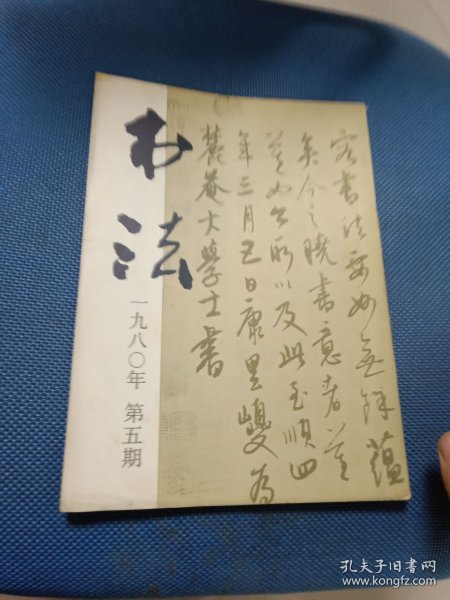 书法
一九八〇年 第五期
容书法要妙无余蕴
矣今之晓书意者莫
莫如公所以及此至顺四
年三月五日康里巎为
麓菴大学士书
孔夫子旧书网
www.kongfz.com